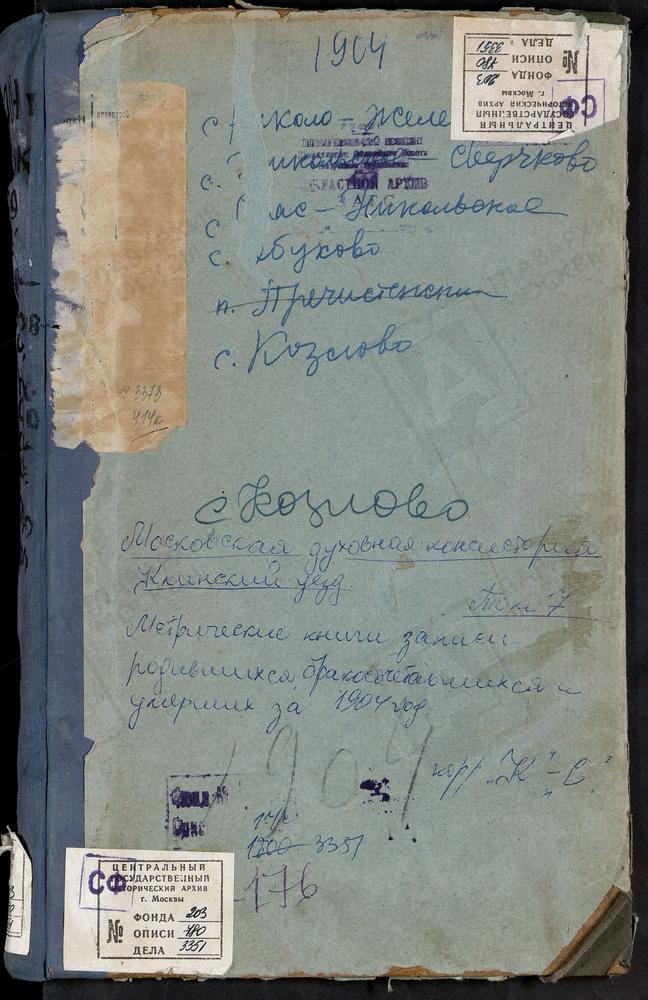 1904
№ ДЕЛА 3351
ОПИСИ 780
ФОНДА 203
г. Москвы
ИСТОРИЧЕСКИЙ АРХИВ
ГОСУДАРСТВЕННЫЙ
ЦЕНТРАЛЬНЫЙ
СФ
с. Николо-Желе
с. Никольское - Сверчково
ОБЛАСТНОЙ АРХИВ
с. Спас-Никольское
с. Ябухово
п. Пречистенский
с. Козлово
№ 3373
414с
с Козлово
Московская духовная консистория
Клинский уезд.
Том 7
Метрические книги записи
родившихся, бракосочетавшихся и
умерших за 1904 год.
1904
корр. "К" - "С"
Фонд №
Опис
1200 3351
176
ЦЕНТРАЛЬНЫЙ
ГОСУДАРСТВЕННЫЙ
ИСТОРИЧЕСКИЙ АРХИВ
г. Москвы
СФ
ФОНДА 203
№ ОПИСИ 780
ДЕЛА 3351